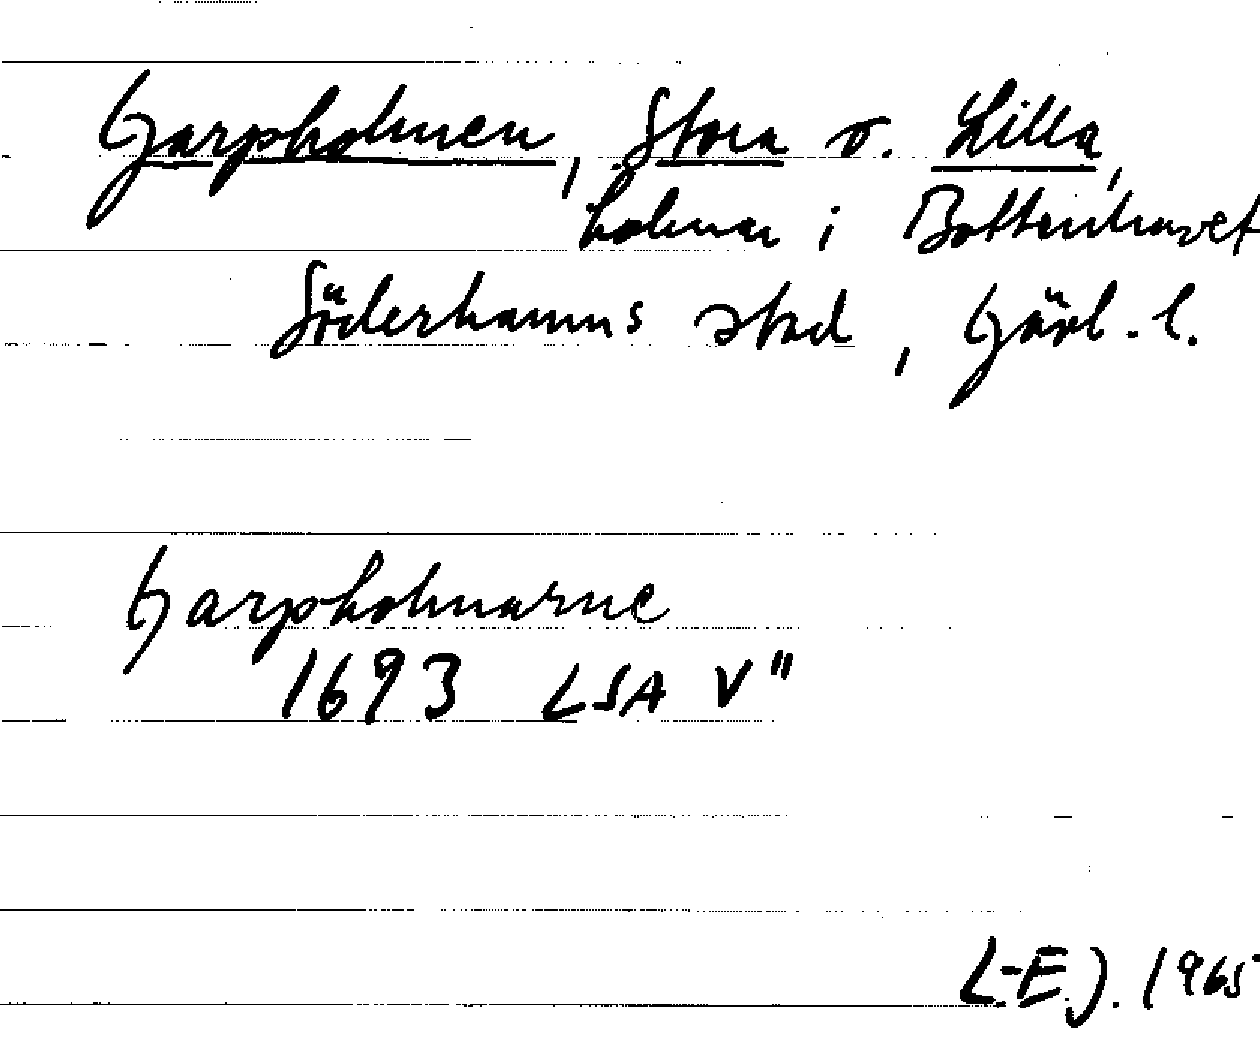 Garpholmen, Stora o. Lilla,
holmar i Bottenhavet
Söderhamns stad, Gävl. l.
Garpholmarne
1693 LSA V"
L-E J. 1965